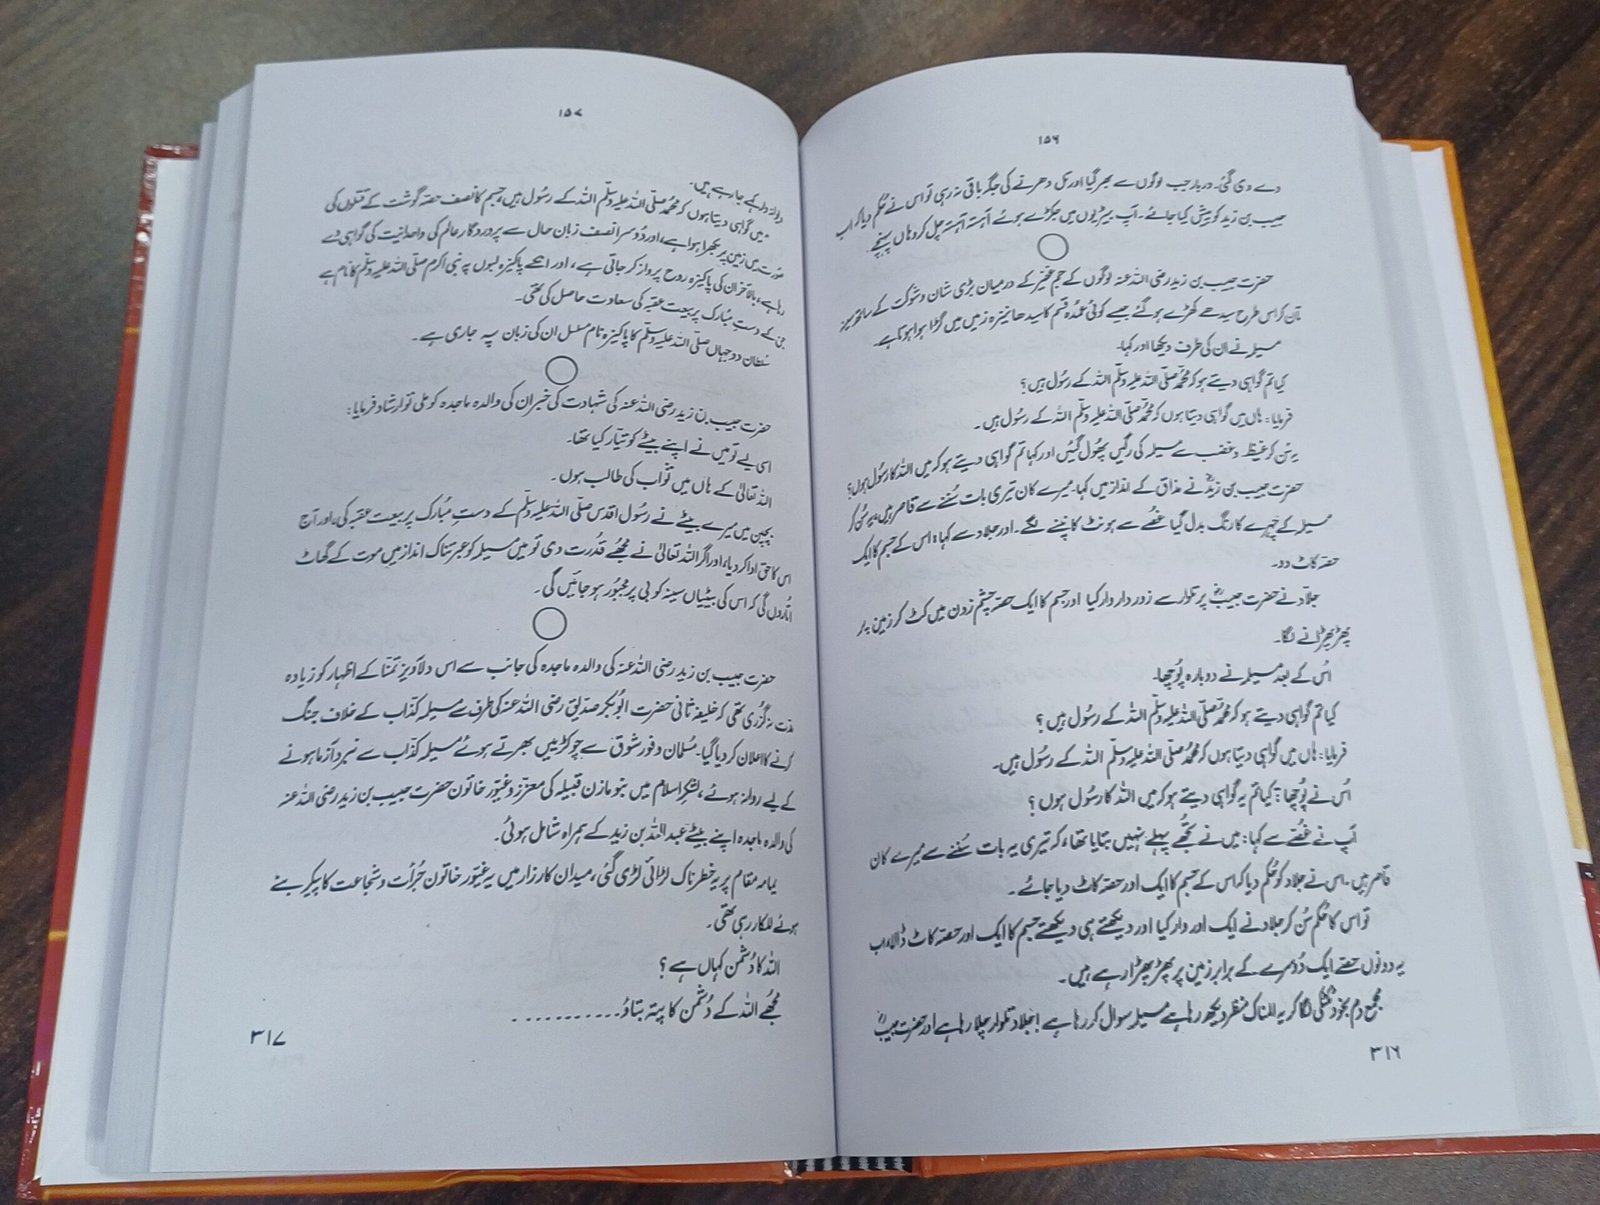 ۱۵۶
دے دی گئی۔ دربار جب لوگوں سے بھر گیا اور تل دھرنے کی جگہ باقی نہ رہی تو اس نے حُکم دیا کہ اب
حبیب بن زید کو پیش کیا جائے۔ آپ بیڑیوں میں جکڑے ہوئے آہستہ آہستہ چل کر وہاں پہنچے
حضرت حبیب بن زید رضی اللہ عنہ لوگوں کے جمِ غفیر کے درمیان بڑی شان و شوکت کے ساتھ سینہ
تان کر اس طرح سیدھے کھڑے ہو گئے جیسے کوئی عُمدہ قسم کا سیدھا نیزہ زمیں میں گڑا ہوا ہوتا ہے۔
مسیلمہ نے ان کی طرف دیکھا اور کہا۔
کیا تم گواہی دیتے ہو کہ مُحمّد صلّی اللہ علیہ وسلّم اللہ کے رسُول ہیں؟
فرمایا: ہاں میں گواہی دیتا ہوں کہ مُحمّد صلّی اللہ علیہ وسلّم اللہ کے رسُول ہیں۔
یہ سُن کر غیظ و غضب سے مسیلمہ کی رگیں پھُول گئیں اور کہا تم گواہی دیتے ہو کہ میں اللہ کا رسُول ہوں؟
حضرت حبیب بن زیدؓ نے مذاق کے انداز میں کہا۔ میرے کان تیری بات سُننے سے قاصر ہیں، یہ سُن کر
مسیلمہ کے چہرے کا رنگ بدل گیا غصّے سے ہونٹ کانپنے لگے۔ اور جلاد سے کہا: اس کے جسم کا ایک
حصّہ کاٹ دو۔
جلاد نے حضرت حبیبؓ پر تلوار سے زور دار وار کیا اور جسم کا ایک حصّہ چشم زدن میں کٹ کر زمین پر
پھڑپھڑانے لگا۔
اُس کے بعد مسیلمہ نے دوبارہ پُوچھا۔
کیا تم گواہی دیتے ہو کہ مُحمّد صلّی اللہ علیہ وسلّم اللہ کے رسُول ہیں؟
فرمایا: ہاں میں گواہی دیتا ہوں کہ مُحمّد صلّی اللہ علیہ وسلّم اللہ کے رسُول ہیں۔
اُس نے پُوچھا: کیا تم یہ گواہی دیتے ہو کہ میں اللہ کا رسُول ہوں؟
آپ نے غصّے سے کہا: میں نے تجھے پہلے نہیں بتایا تھا، کہ تیری یہ بات سُننے سے میرے کان
قاصر ہیں۔ اس نے جلاد کو حُکم دیا کہ اس کے جسم کا ایک اور حصّہ کاٹ دیا جائے۔
تو اس کا حُکم سُن کر جلاد نے ایک اور وار کیا اور دیکھتے ہی دیکھتے جسم کا ایک اور حصّہ کاٹ ڈالا، اب
یہ دونوں حصّے ایک دُوسرے کے برابر زمین پر پھڑپھڑا رہے ہیں۔
مجمع دم بخود ٹکٹکی لگا کر یہ المناک منظر دیکھ رہا ہے مسیلمہ سوال کر رہا ہے! جلاد تلوار چلا رہا ہے اور حضرت حبیبؓ
۳۱۶
۱۵۷
دیوانہ وار کہے جا رہے ہیں۔
میں گواہی دیتا ہوں کہ مُحمّد صلّی اللہ علیہ وسلّم اللہ کے رسُول ہیں، جسم کا نصف حصّہ گوشت کے قتلوں کی
صُورت میں زمین پر بکھرا ہوا ہے، اور دُوسرا نصف زبان حال سے پروردگارِ عالم کی واحدانیت کی گواہی دے
رہا ہے، بالآخر ان کی پاکیزہ روح پرواز کر جاتی ہے، اور انکے پاکیزہ لبوں پہ نبی اکرم صلّی اللہ علیہ وسلّم کا نام ہے
جن کے دستِ مُبارک پر بیعت عقبہ کی سعادت حاصل کی تھی۔
سُلطان دو جہاں صلّی اللہ علیہ وسلّم کا پاکیزہ نام مسلسل ان کی زبان پہ جاری ہے۔
حضرت حبیب بن زید رضی اللہ عنہ کی شہادت کی خبر ان کی والدہ ماجدہ کو ملی تو ارشاد فرمایا:
اسی لیے تو میں نے اپنے بیٹے کو تیّار کیا تھا۔
اللہ تعالیٰ کے ہاں میں ثواب کی طالب ہوں۔
بچپن میں میرے بیٹے نے رسُول اقدس صلّی اللہ علیہ وسلّم کے دستِ مُبارک پر بیعت عقبہ کی، اور آج
اس کا حق ادا کر دیا، اور اگر اللہ تعالیٰ نے مُجھے قُدرت دی تو میں مسیلمہ کو عبرتناک انداز میں موت کے گھاٹ
اُتاروں گی کہ اس کی بیٹیاں سینہ کوبی پر مجبُور ہو جائیں گی۔
حضرت حبیب بن زید رضی اللہ عنہ کی والدہ ماجدہ کی جانب سے اس دلآویز تمنّا کے اظہار کو زیادہ
مدت نہ گُزری تھی کہ خلیفہ ثانی حضرت ابُوبکر صدیق رضی اللہ عنہ کی طرف سے مسیلمہ کذاب کے خلاف جنگ
کرنے کا اعلان کر دیا گیا۔ مُسلمان وفور شوق سے چوکڑیں بھرتے ہوئے مسیلمہ کذاب سے نبرد آزما ہونے
کے لیے روانہ ہوئے، لشکرِ اسلام میں بنو مازن قبیلہ کی معزز و غیّور خاتون حضرت حبیب بن زید رضی اللہ عنہ
کی والدہ ماجدہ اپنے بیٹے عبد اللہ بن زید کے ہمراہ شامل ہوئی۔
یمامہ مقام پر یہ خطرناک لڑائی لڑی گئی، میدان کارزار میں یہ غیّور خاتون جُراُت و شجاعت کا پیکر بنے
ہوئے للکار رہی تھی۔
اللہ کا دُشمن کہاں ہے؟
مُجھے اللہ کے دُشمن کا پتہ بتاؤ..........
۳۱۷